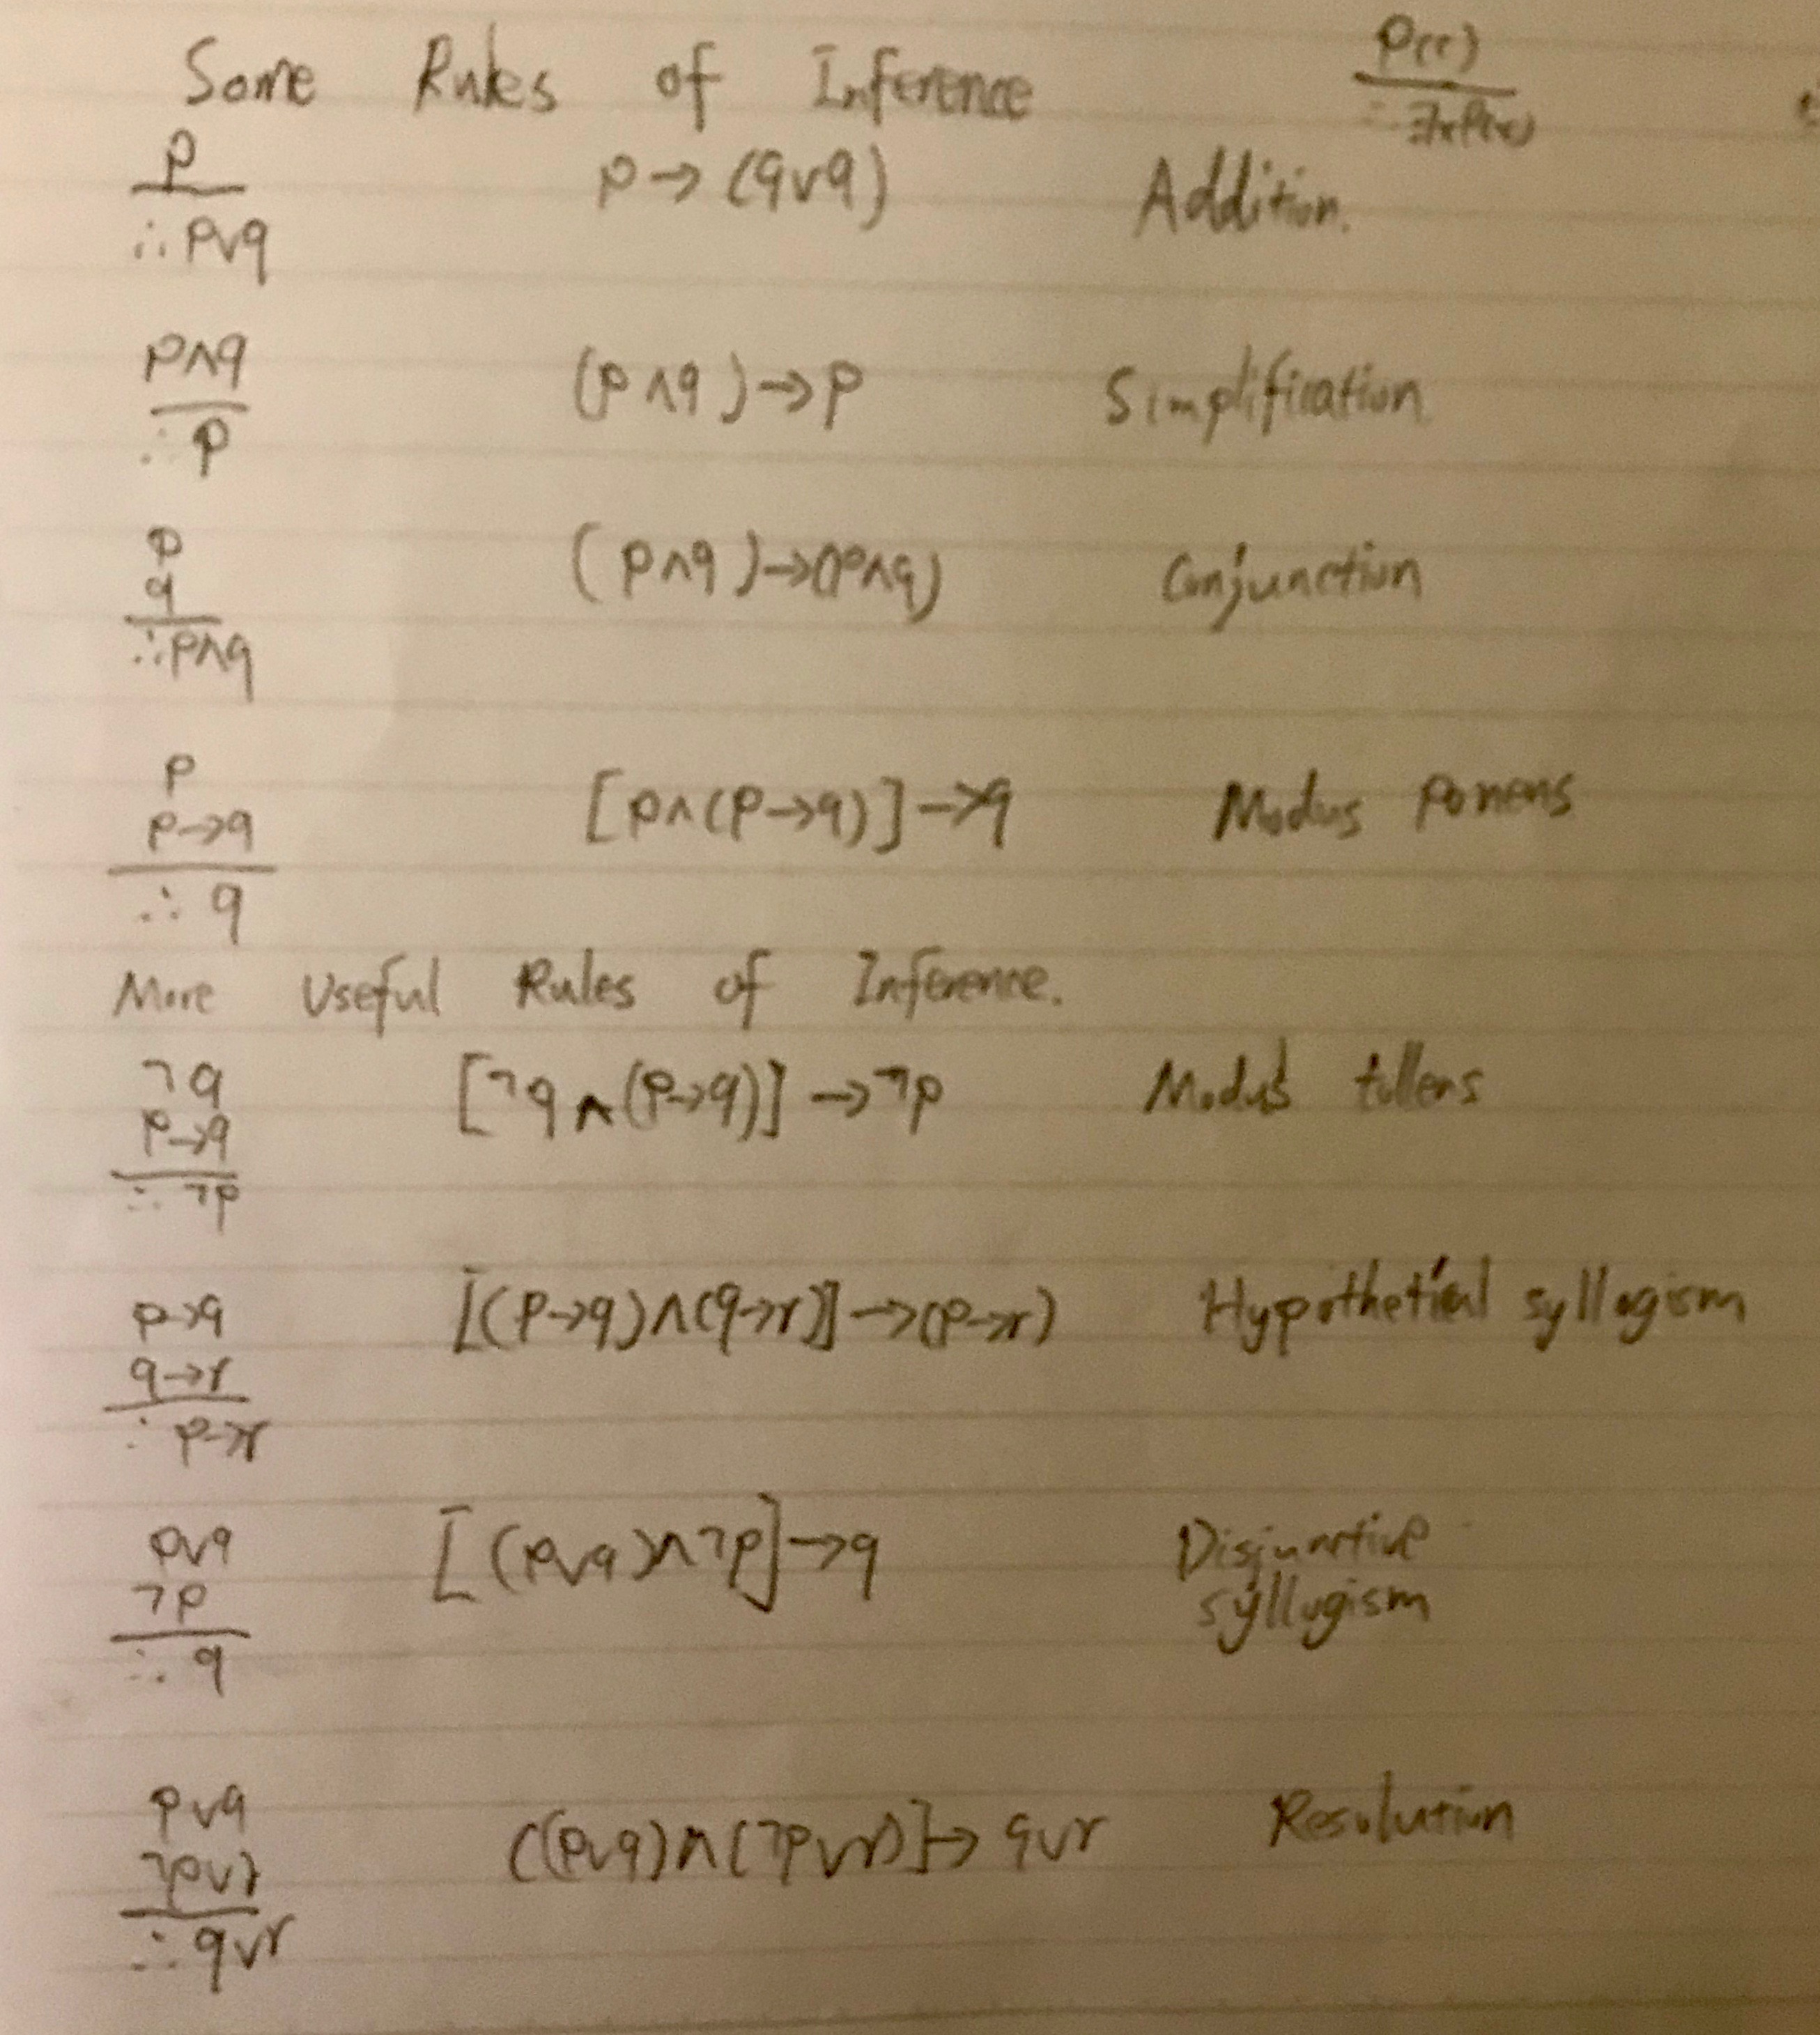 Some Rules of Inference
P(c)
∴ ∃xP(x)
p
∴ p∨q
p → (q∨q)
Addition.
p∧q
∴ p
(p∧q) → p
Simplification
p
q
∴ p∧q
(p∧q) → (p∧q)
Conjunction
p
p→q
∴ q
[p∧(p→q)] → q
Modus ponens
More Useful Rules of Inference.
¬q
p→q
∴ ¬p
[¬q∧(p→q)] → ¬p
Modus tollens
p→q
q→r
∴ p→r
[(p→q)∧(q→r)] → (p→r)
Hypothetical syllogism
p∨q
¬p
∴ q
[(p∨q)∧¬p] → q
Disjunctive
syllogism
p∨q
¬p∨r
∴ q∨r
((p∨q)∧(¬p∨r)] → q∨r
Resolution